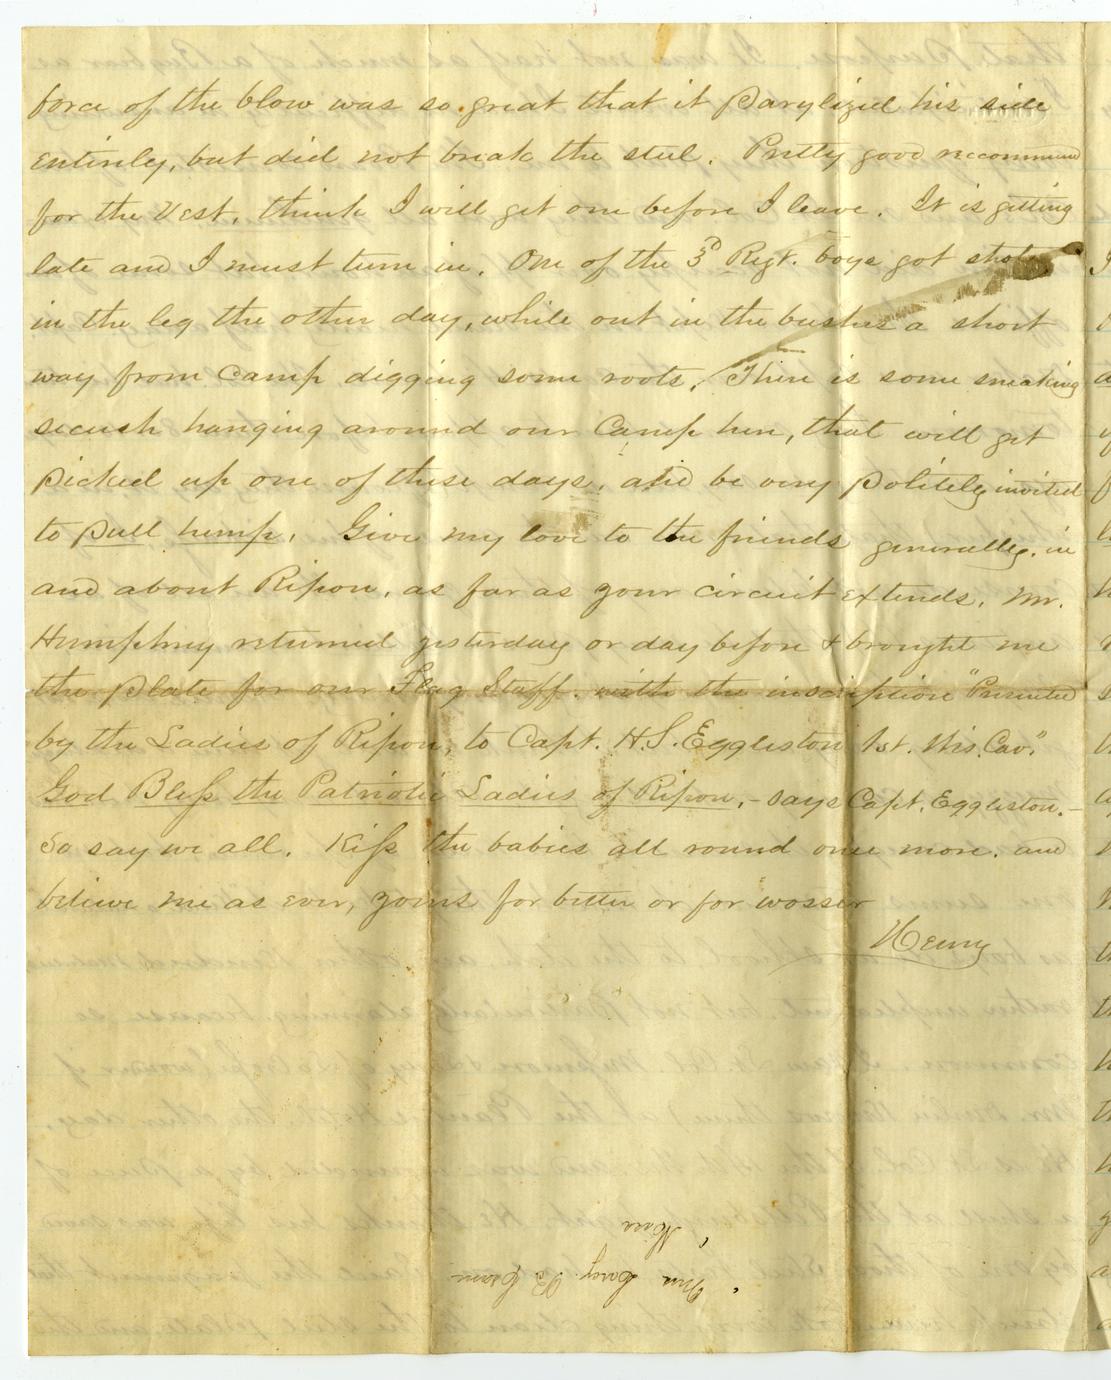 force of the blow was so great that it parylized his side
entirely, but did not break the steel. Pretty good reccommend
for the Vest, think I will get one before I leave. It is getting
late and I must turn in. One of the 3d Regt. boys got shot
in the leg the other day, while out in the bushes a short
way from Camp digging some roots. There is some sneaking
secesh hanging around our Camp here, that will get
picked up one of these days, and be very politely invited
to pull hemp. Give my love to the friends generally, in
and about Ripon, as far as your circuit extends. Mr.
Humphrey returned yesterday or day before & brought me
the plate for our Flag Staff. with the inscription "Presented
by the Ladies of Ripon, to Capt. H.S. Eggleston 1st. Wis. Cav."
God Bless the Patriotic Ladies of Ripon, - says Capt. Eggleston. -
So say we all. Kiss the babies all round once more. and
believe me as ever, yours for better or for wosser
Henry
Mrs